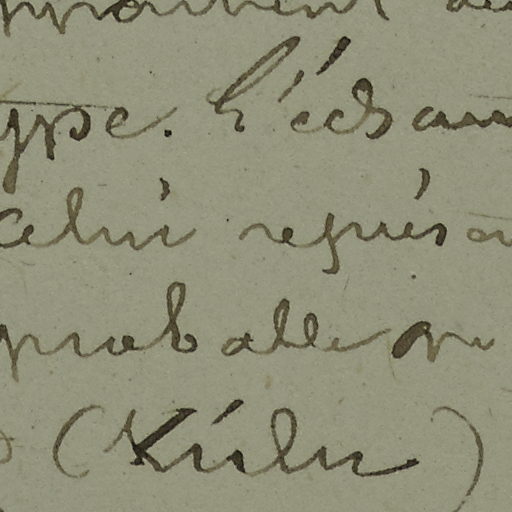 ype. L'échan
celui représ
probable que
(Kühn)